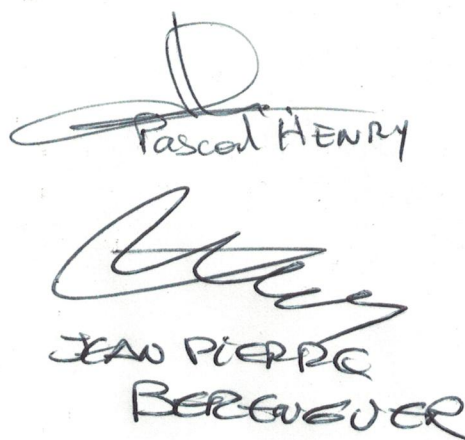 Pascal HENRY
JEAN PIERRE
BERENGUER